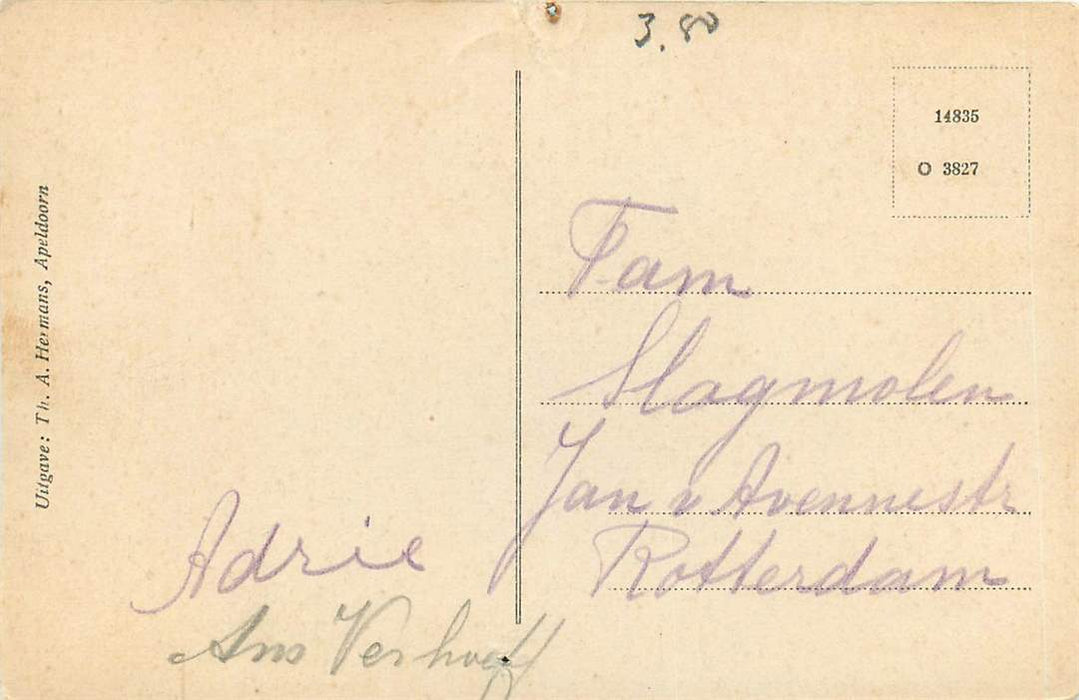 3.80
14835
O 3827
Uitgave: Th. A. Hermans, Apeldoorn
Fam
Slagmolen
Jan v Avennestr
Rotterdam
Adrie
Ans Verhoeff